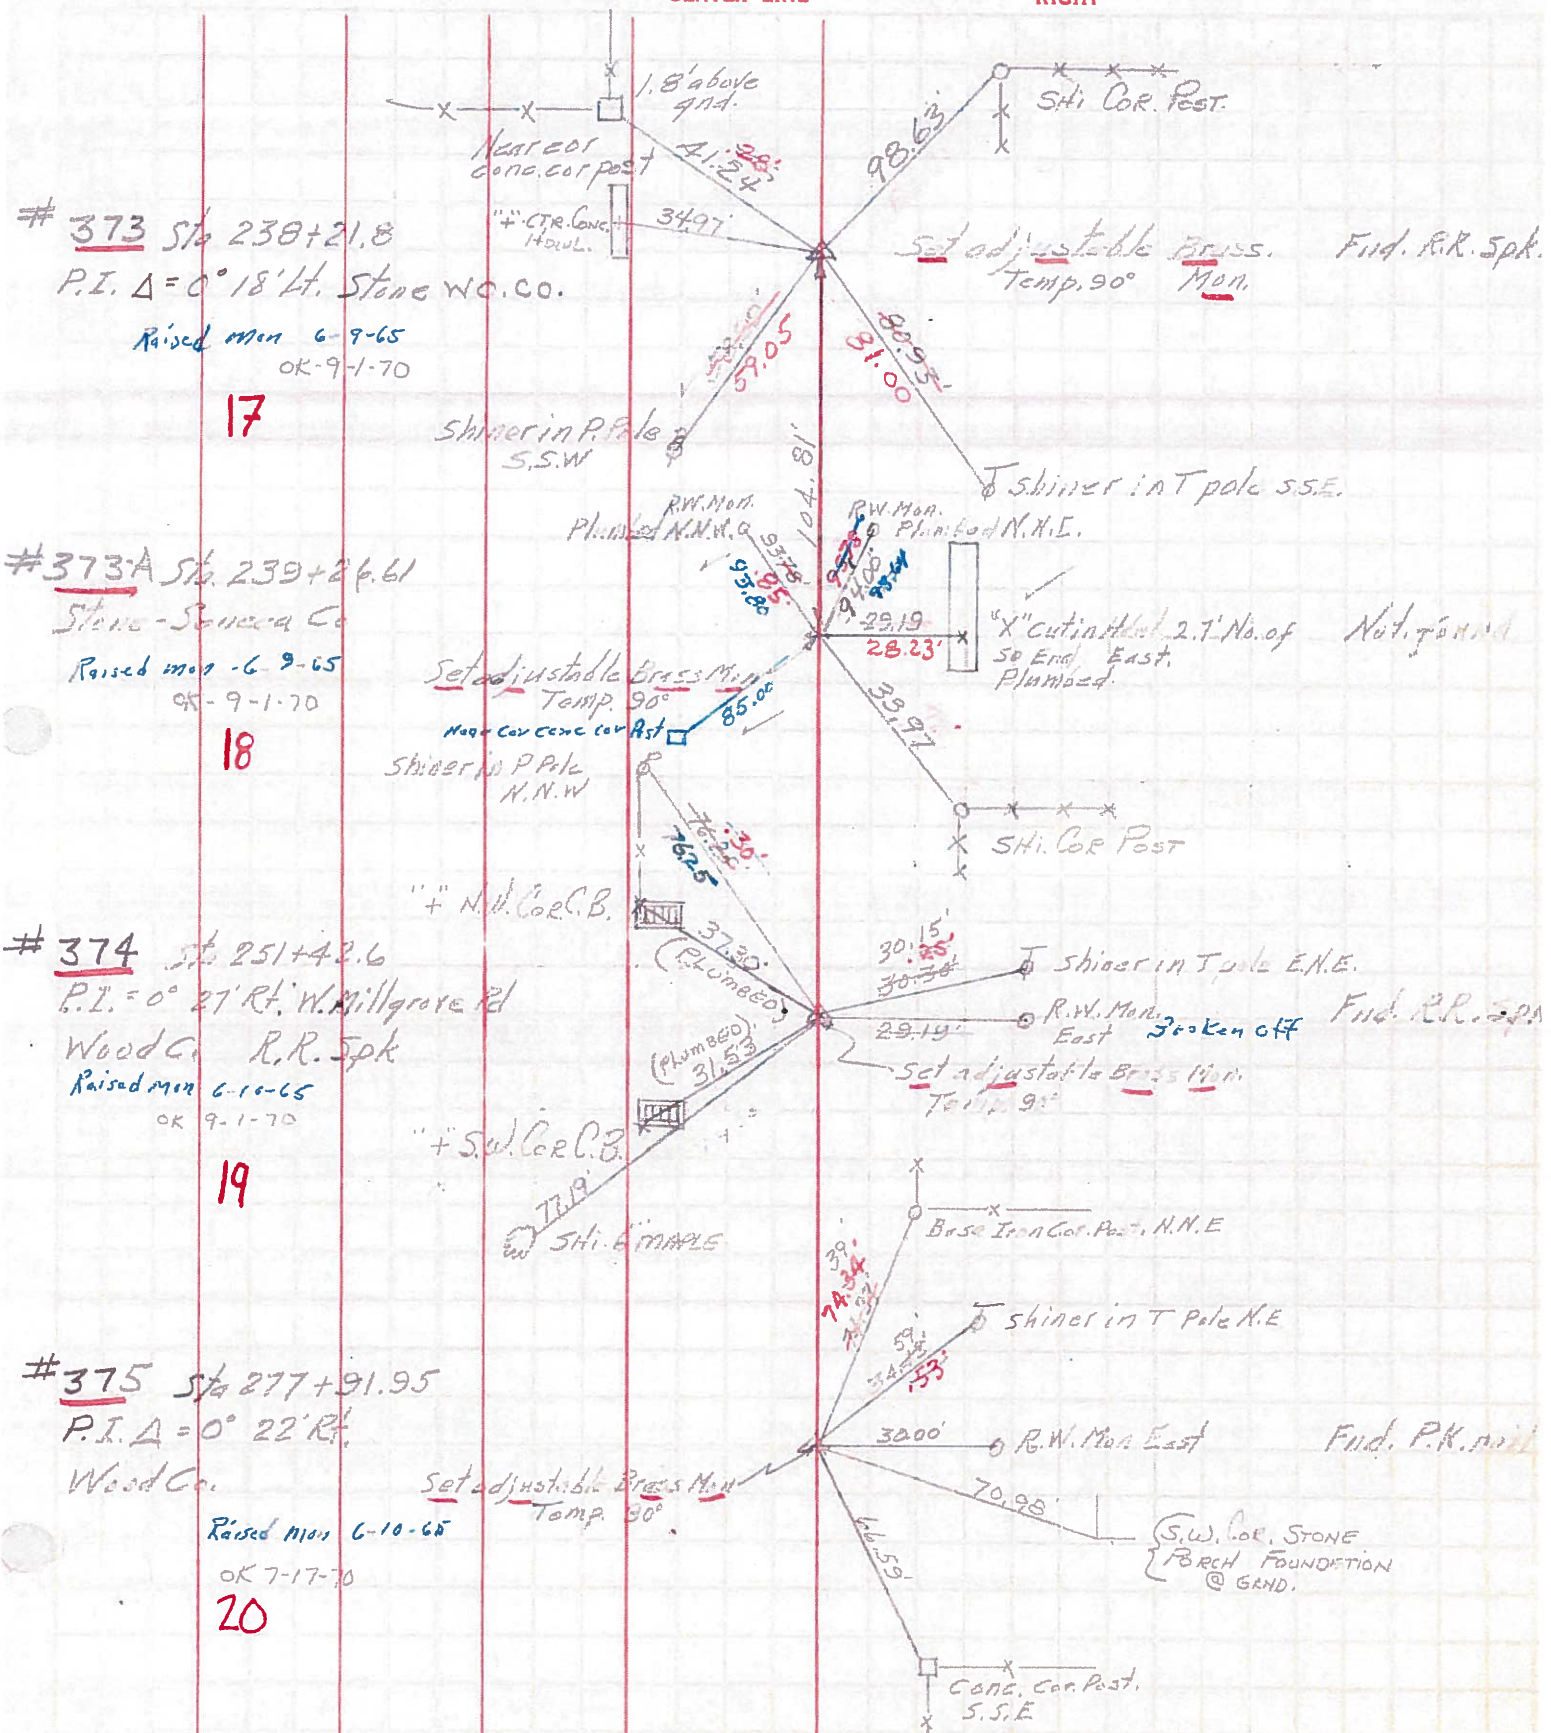 RIGHT
1.8' above
gnd.
Near cor
conc. cor post
41.24'
.28'
98.63'
SHi COR. POST.
# 373 Sta 238+21.8
P.I. Δ = 0° 18' Lt. Stone WO. CO.
Raised mon 6-9-65
OK-9-1-70
17
"+" CTR. CONC.
34.97'
Set adjustable Brass. Mon.
Temp. 90°
Fnd. R.R. Spk.
59.05
80.93'
81.00
Shiner in P. Pole
S.S.W
104.81'
Shiner in T pole S.S.E.
R.W. Mon.
Plumbed N.N.W.
93.78'
.85'
93.80
R.W. Mon.
Plumbed N.N.E.
94.00'
# 373A Sta. 239+26.61
Stone - Seneca Co
Raised mon - 6-9-65
OK - 9-1-70
18
29.19
28.23'
"X" Cut in Hdwl 2.7' No. of
So End East.
Plumbed.
Not found
Set adjustable Brass Mon
Temp. 90°
85.00
Near cor conc cor Post
39.97
SHi. COR POST
Shiner in P Pole
N.N.W
.30'
76.25
"+" N.W. COR C.B.
37.30'
(PLUMBED)
# 374 Sta 251+42.6
P.I. = 0° 27' Rt. W. Millgrove Rd
Wood Co R.R. Spk
Raised mon 6-10-65
OK 9-1-70
19
30.15'
.25'
30.30'
Shiner in T pole E.N.E.
29.19'
R.W. Mon.
East Broken off
Fnd. R.R. Spk
Set adjustable Brass Mon.
Temp 90°
(PLUMBED)
31.53'
"+" S.W. COR C.B.
77.19'
SHi. 6" MAPLE
39'
74.34'
Base Iron Cor. Post. N.N.E
.53'
Shiner in T Pole N.E
# 375 Sta 277+91.95
P.I. Δ = 0° 22' Rt.
Wood Co.
Raised mon 6-10-65
OK 7-17-70
20
30.00'
R.W. Mon East
Fnd. P.K. nail
Set adjustable Brass Mon
Temp. 90°
70.98'
S.W. COR. STONE
PORCH FOUNDATION
@ GRND.
66.59
Conc. Cor. Post.
S.S.E